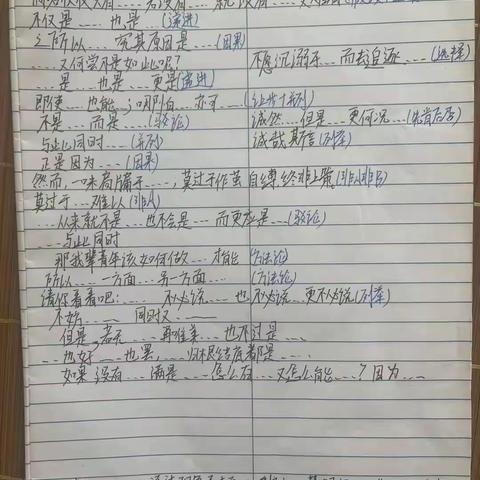 不仅是……也是……(递进)
之所以……究其原因是……(因果)
……又何尝不是如此呢? 不愿沉溺于……而去追逐……(选择)
……是……也是……更是(递进)
即使……也能……亦可……(让步+并列)
诚然……但是……更何况……(先肯后否)
不是……而是……(驳论)
与此同时……(并列) 诚哉斯言(列举)
正是因为……(因果)
然而,一味局牖于……,莫过于作茧自缚,终非上策
莫过于……难以
……从来就不是……也不会是……而更应是……(驳论)
……与此同时
那我辈青年该如何做……才能(方法论)
所以……一方面……另一方面……(方法论)
请你看看吧:……不必说……也不必说……更不必说(列举)
不妨……同时又……
但是,若无……再唯美……也不过是……
……也好……也罢,……归根结底都是……
如果没有……满是……怎么有……又怎么能……?因为……